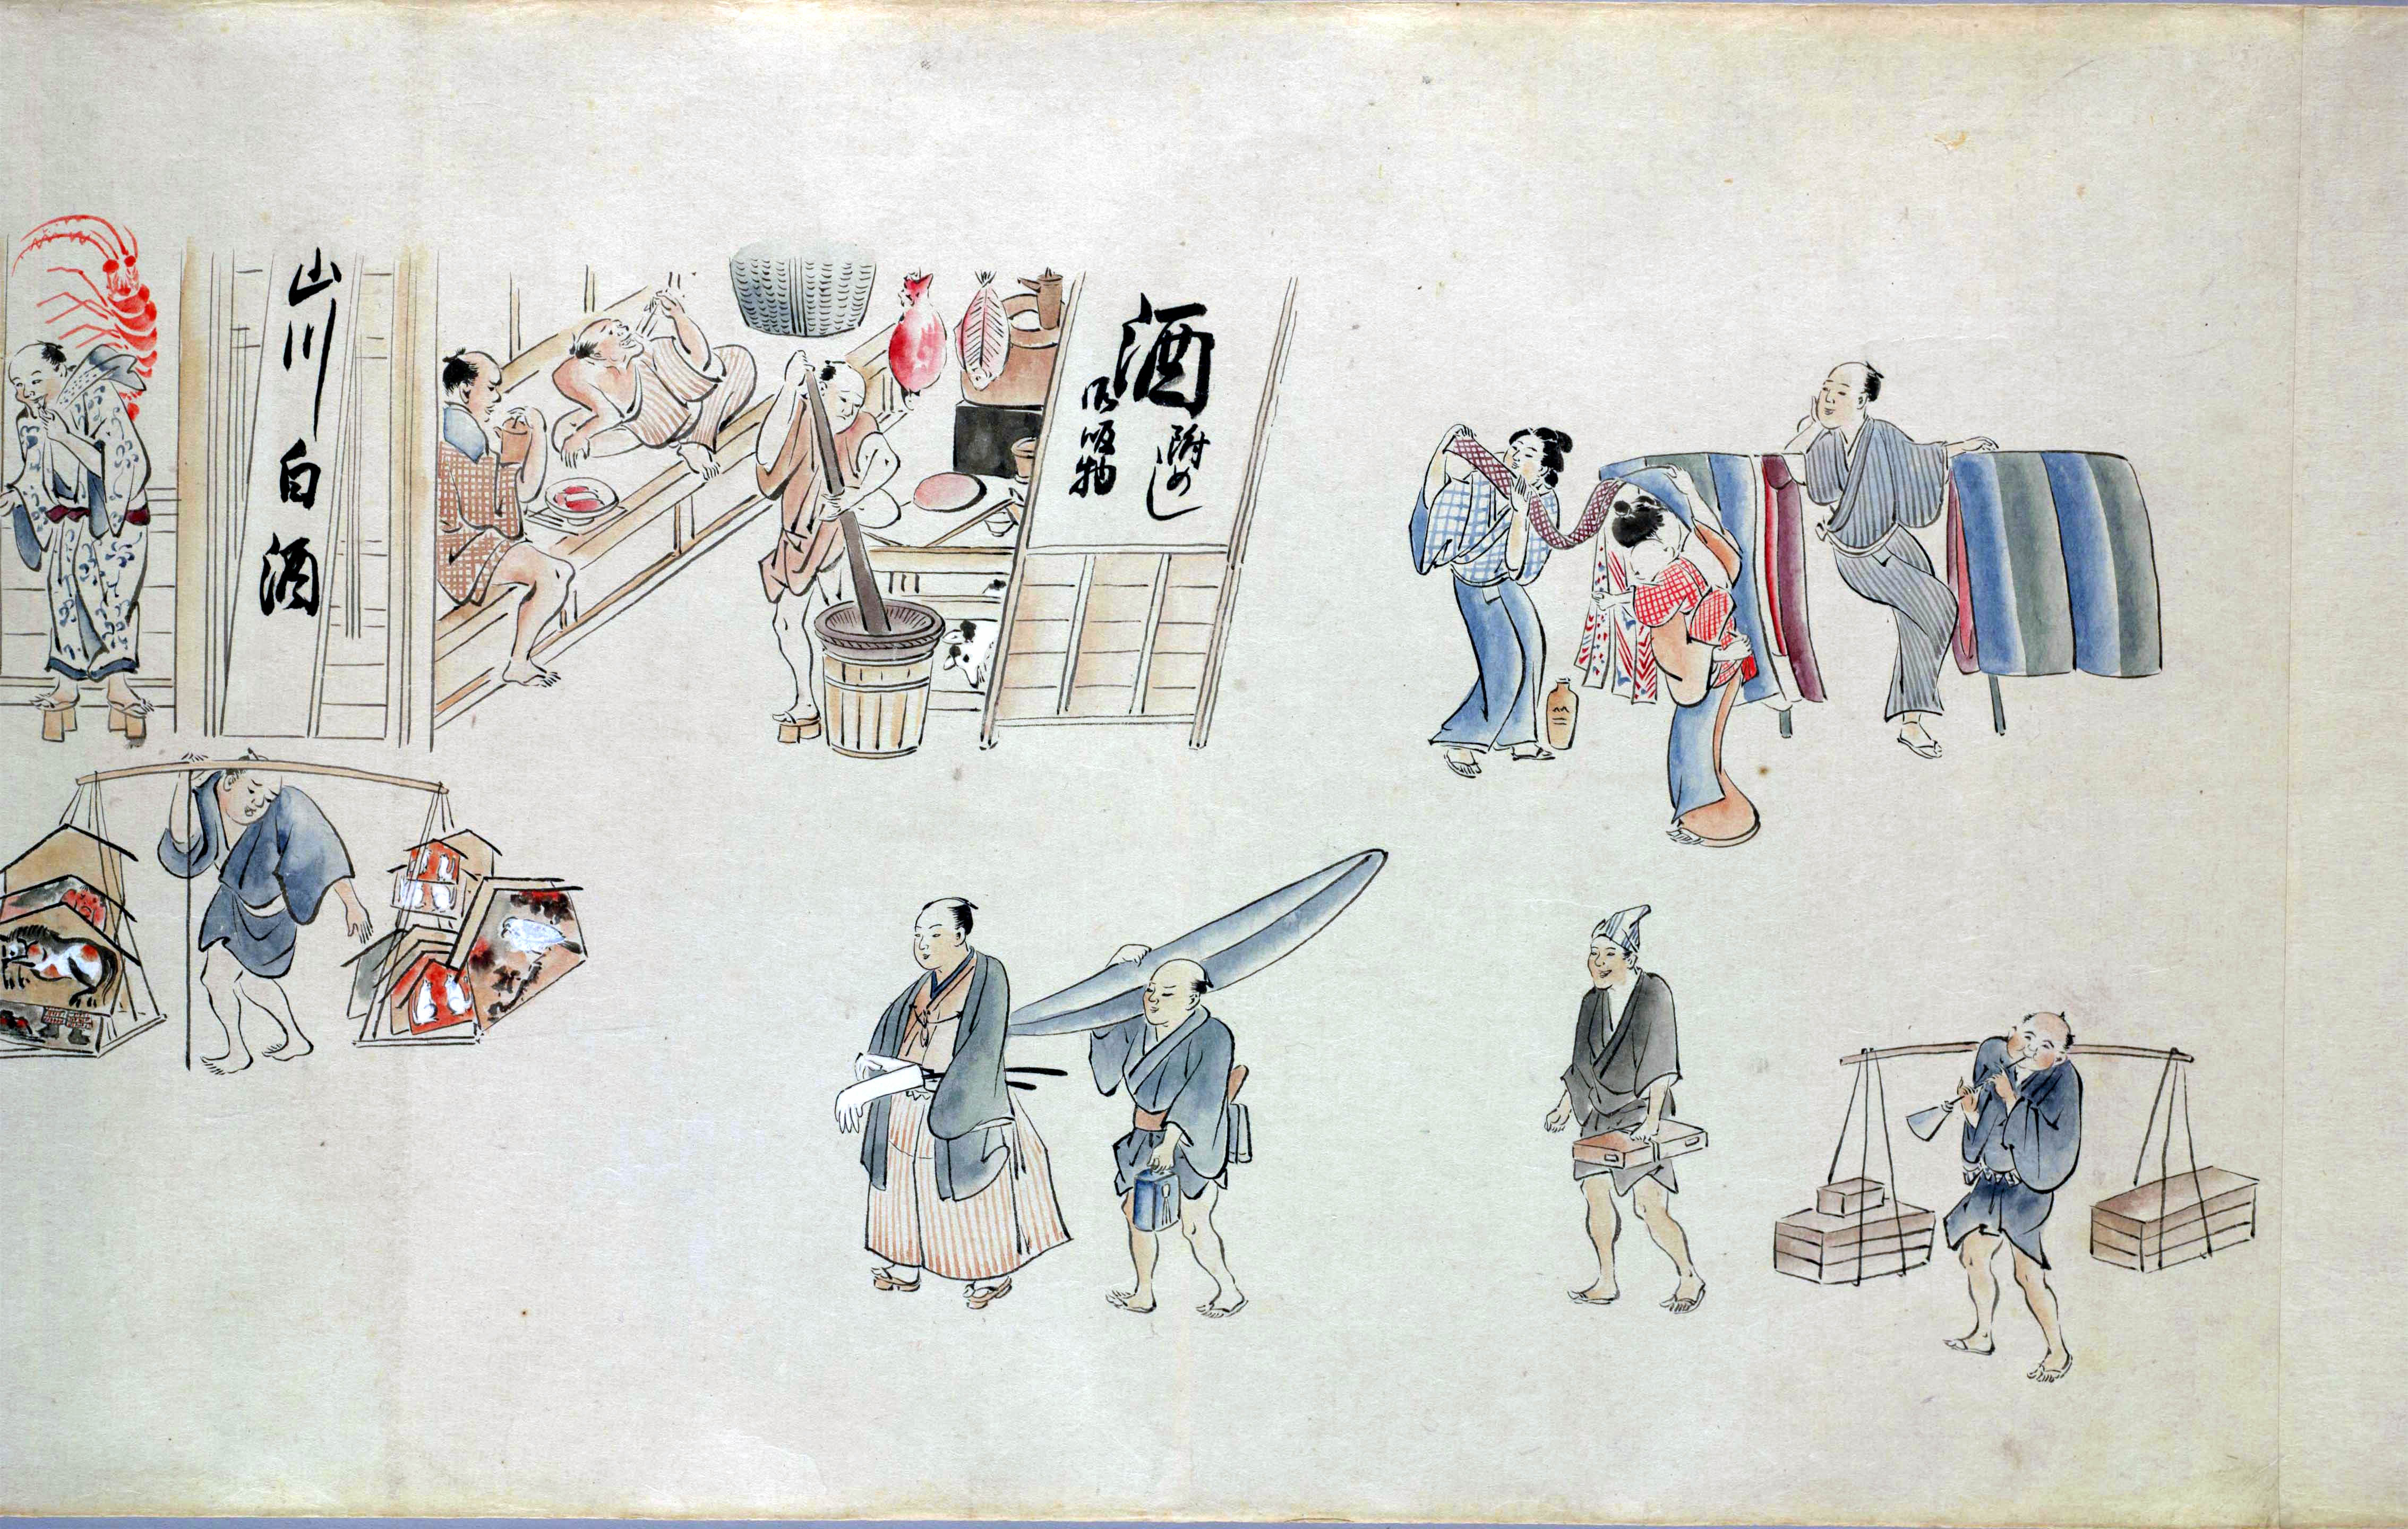 酒
附めし
御吸物
山川白酒